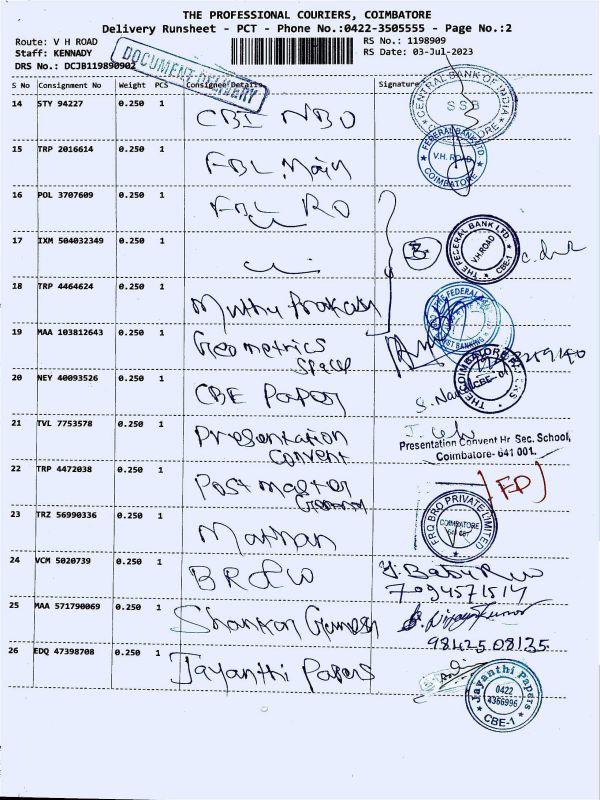 THE PROFESSIONAL COURIERS, COIMBATORE
Delivery Runsheet - PCT - Phone No.:0422-3505555 - Page No.:2
Route: V H ROAD
RS No.: 1198909
Staff: KENNADY
RS Date: 03-Jul-2023
DRS No.: DCJB119890902
DOCUMENT DELIVERY
S No Consignment No Weight PCS Consignee Details Signature
14 STY 94227 0.250 1 CBI NBO
CENTRAL BANK OF INDIA
SSB
15 TRP 2016614 0.250 1 FBL Main
FEDERAL BANK LTD
V.H. ROAD
COIMBATORE
16 POL 3707609 0.250 1 FBL RO
17 IXM 504032349 0.250 1
THE FEDERAL BANK LTD
V.H.ROAD
CBE-1
18 TRP 4464624 0.250 1 Muthu Prakash
19 MAA 103812643 0.250 1 Geometrics
Space
20 NEY 40093526 0.250 1 CBE Paper
CBE-01
21 TVL 7753578 0.250 1 Presentation
Convent
Presentation Convent Hr. Sec. School,
Coimbatore- 641 001.
22 TRP 4472038 0.250 1 Post master
General
23 TRZ 56990336 0.250 1 Mathan
FRQ BRO PRIVATE LIMITED
COIMBATORE
24 VCM 5020739 0.250 1
7094571517
25 MAA 571790069 0.250 1 Shankar Ganesh
98425 08135
26 EDQ 47398708 0.250 1 Jayanthi Papers
Jayanthi Papers
0422
4366996
CBE-1